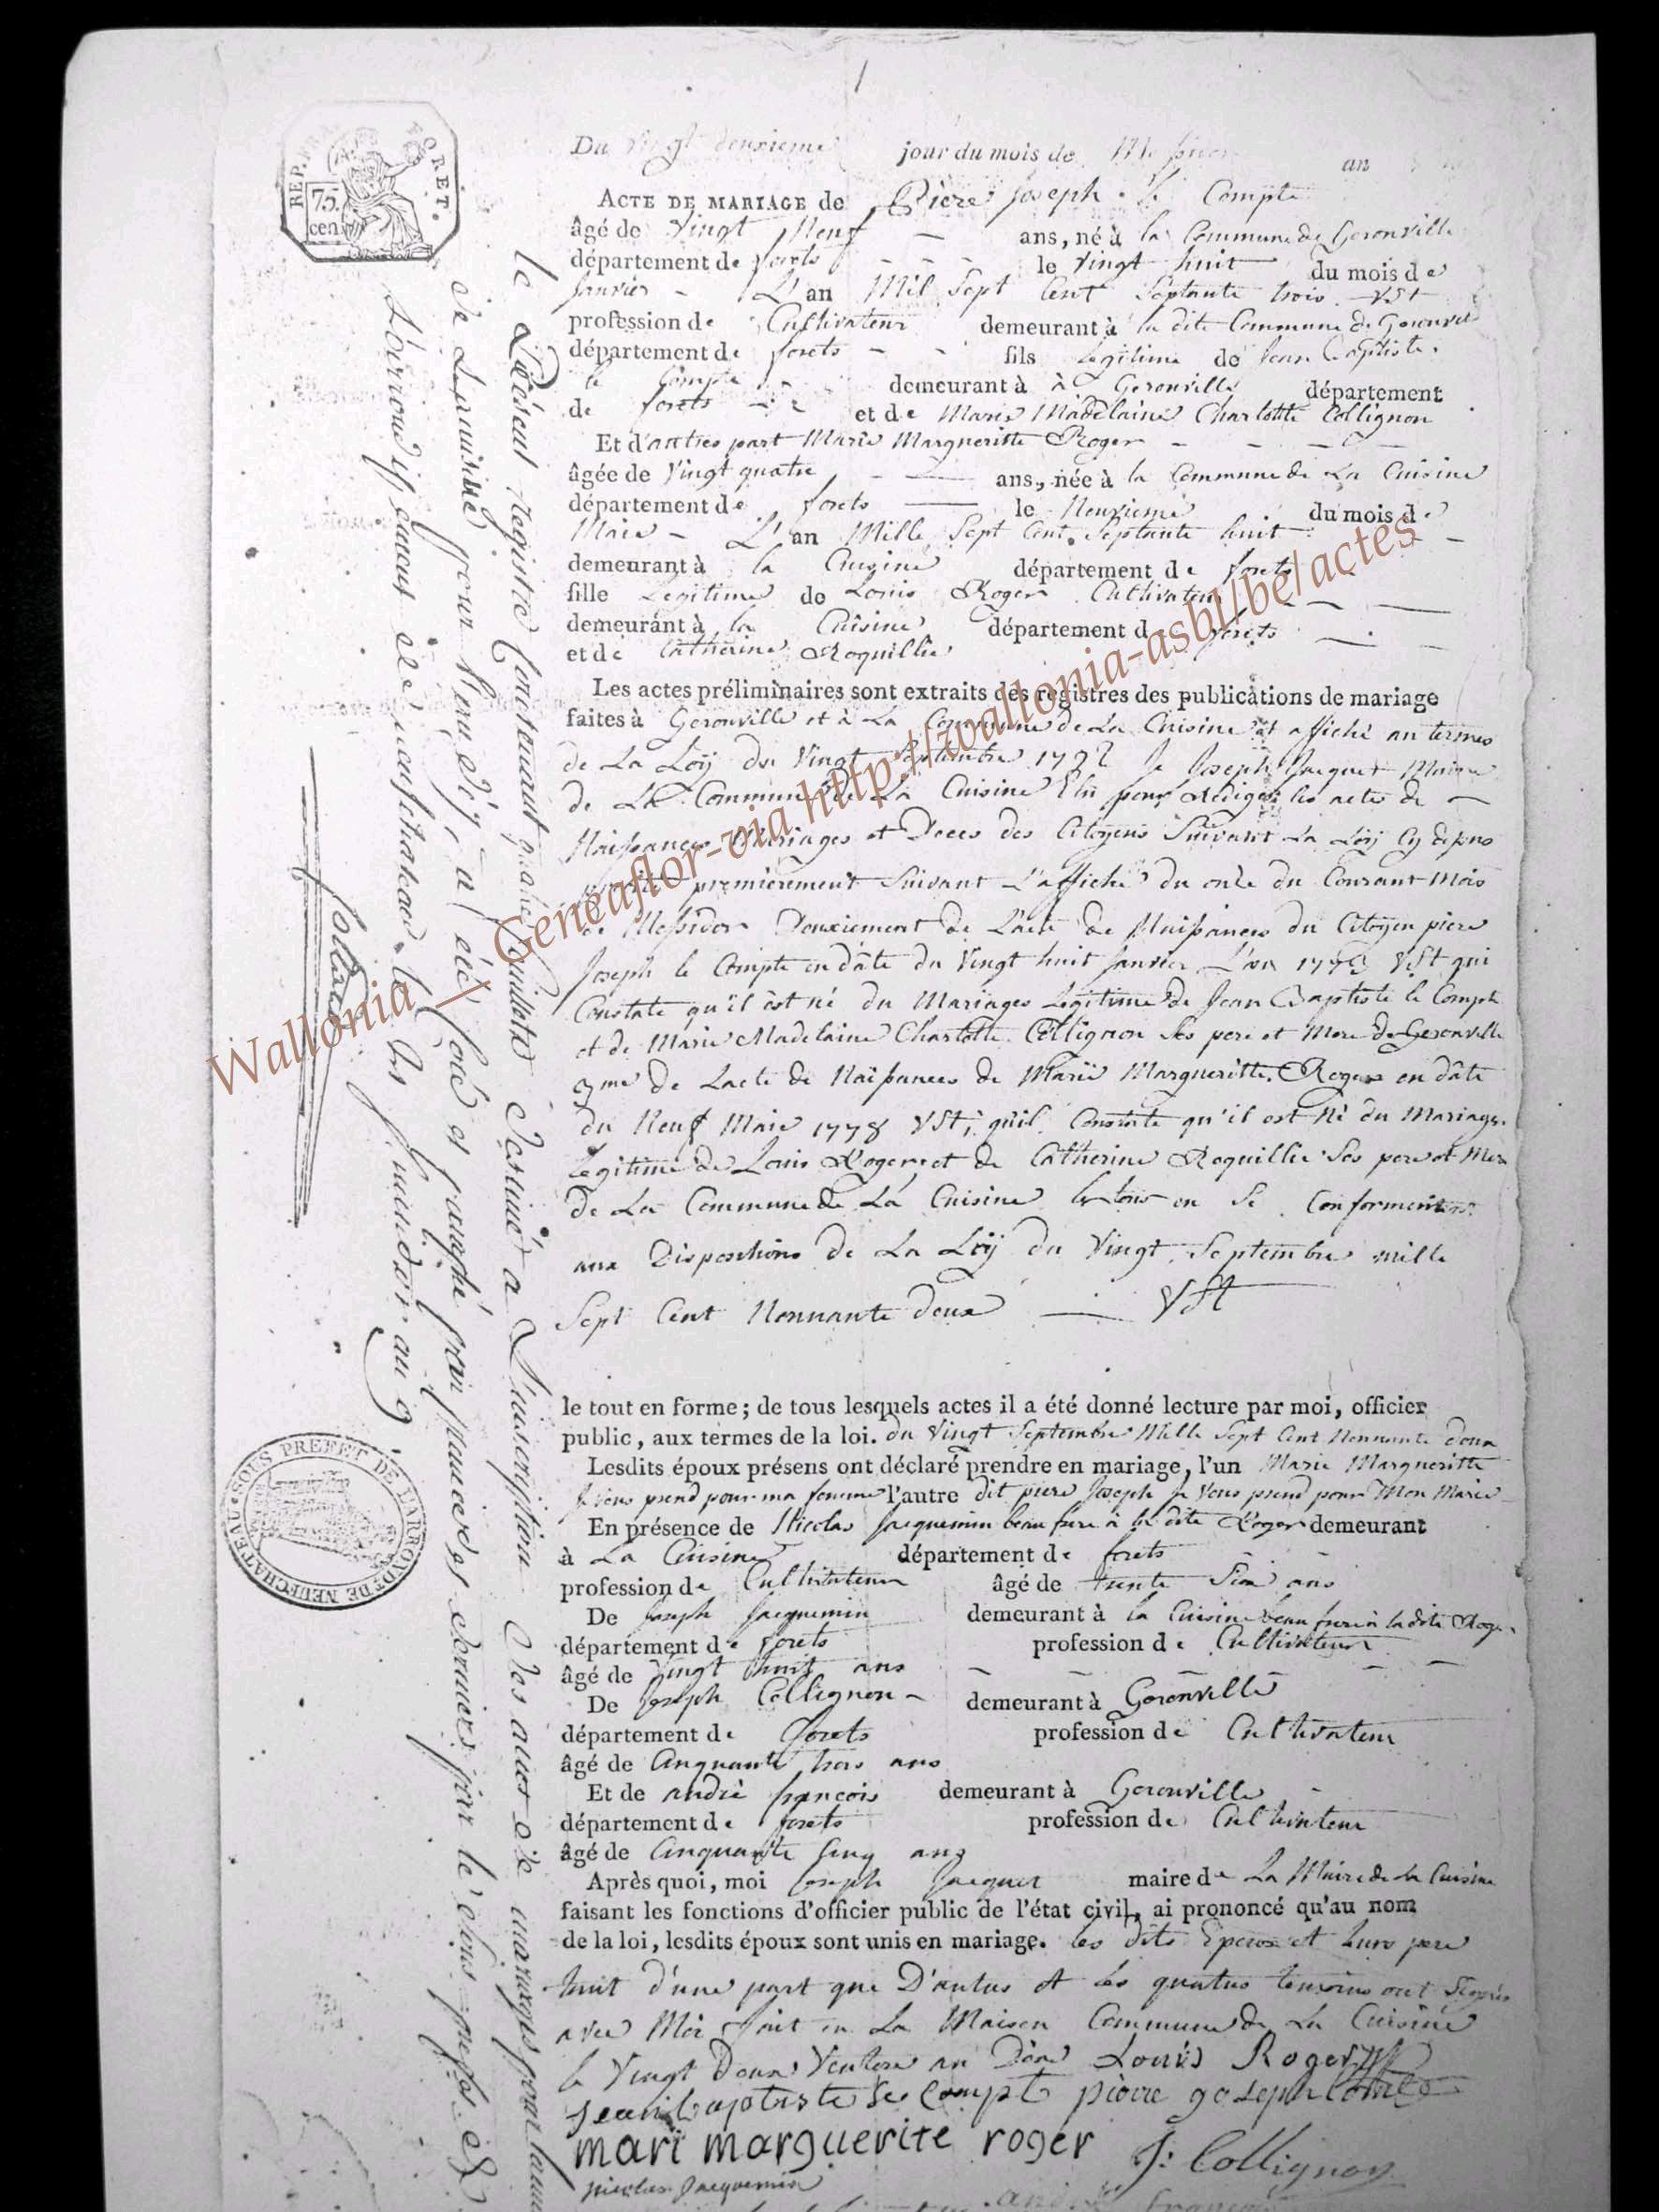 REP. FRA. FORET.
75.
cen.
Du Vingt deuxieme jour du mois de Messidor an
ACTE DE MARIAGE de Pière Joseph le Compte
âgé de Vingt Neuf ans, né à la Commune de Geronville
département de forets le Vingt huit du mois de
Janvier L'an Mil Sept Cent Septante trois VSt
profession de Cultivateur demeurant à la dite Commune de Geronville
département de forets fils legitime de Jean Baptiste
le Compte demeurant à à Geronville département
de forets et de Marie Madelaine Charlotte Collignon
Et d'autres part Marie Margueritte Roger
âgée de Vingt quatre ans, née à la Commune de La Cuisine
département de forets le Neuvieme du mois de
Maie L'an Mille Sept Cent Septante huit
demeurant à la Cuisine département de forets
fille Legitime de Louis Roger Cultivateur
demeurant à la Cuisine département d forets
et de Catherine Roquillie
Les actes préliminaires sont extraits des registres des publications de mariage
faites à Geronville et à La Commune de La Cuisine et affiché au termes
de La Loÿ du Vingt Septembre 1792 Je Joseph Jacquet Maire
de La Commune de La Cuisine Elu pour Rediger les actes de
Naissances Mariages et Deces des Citoyens Suivant La Loÿ
premierement Suivant L'affiche du onze du Courant Mois
de Messidor Deuxiement de L'acte de Naissances du Citoyen piere
Joseph le Compte en dâte du Vingt huit Janvier L'an 1773 VSt qui
Constate qu'il est né du Mariages Legitime de Jean Baptiste le Compte
et de Marie Madelaine Charlotte Collignon Ses pere et Mere de Geronville
3me de Lacte de Naissances de Marie Margueritte Roger en dâte
du Neuf Maie 1778 VSt, quil Constate qu'il est Né du Mariage
Legitime de Louis Roger et de Catherine Roquillie Ses pere et Mere
de La Commune de La Cuisine le tout en Se Conforment
aux Dispositions de La Loÿ du Vingt Septembre mille
Sept Cent Nonnante deux VSt
le tout en forme; de tous lesquels actes il a été donné lecture par moi, officier
public, aux termes de la loi. du Vingt Septembre Mille Sept Cent Nonnante deux
Lesdits époux présens ont déclaré prendre en mariage, l'un Marie Margueritte
Je Vous prend pour ma femme l'autre dit piere Joseph Je Vous prend pour Mon Marie
En présence de Nicolas Jacquemin beau frere à la dite Roger demeurant
à La Cuisine département de forets
profession de Cultivateur âgé de trente Six ans
De Joseph Jacquemin demeurant à la Cuisine beau frere à la dite Roger
département de forets profession de Cultivateur
âgé de Vingt huit ans
De Joseph Collignon demeurant à Geronville
département de forets profession de Cultivateur
âgé de Cinquante trois ans
Et de andré françois demeurant à Geronville
département de forets profession de Cultivateur
âgé de Cinquante Cinq ans
Après quoi, moi Joseph Jacquet maire de La Mairie de La Cuisine
faisant les fonctions d'officier public de l'état civil, ai prononcé qu'au nom
de la loi, lesdits époux sont unis en mariage. les dits Epoux et leurs pere
tant d'une part que D'autres et les quatres temoins ont Signés
avec Moi fait en La Maison Commune de La Cuisine
le Vingt Deux an Louis Roger
jean baptiste le Compt pierre joseph
mari marguerite roger J: Collignon
nicolas Jacquemin
françois
Le Présent Registre Contenant feuillets destiné à L'inscription des actes de mariages pour la commune
de Lacuisine pour l'an dix, a été coté et paraphé par premiere et derniere par le Sous prefet de
L'arrondissement de neufchateau Le messidor an 9
SOUS PREFET DE L'ARRONDT DE NEUFCHATEAU
Wallonia _ Geneaflor-via http://wallonia-asbl/be/actes